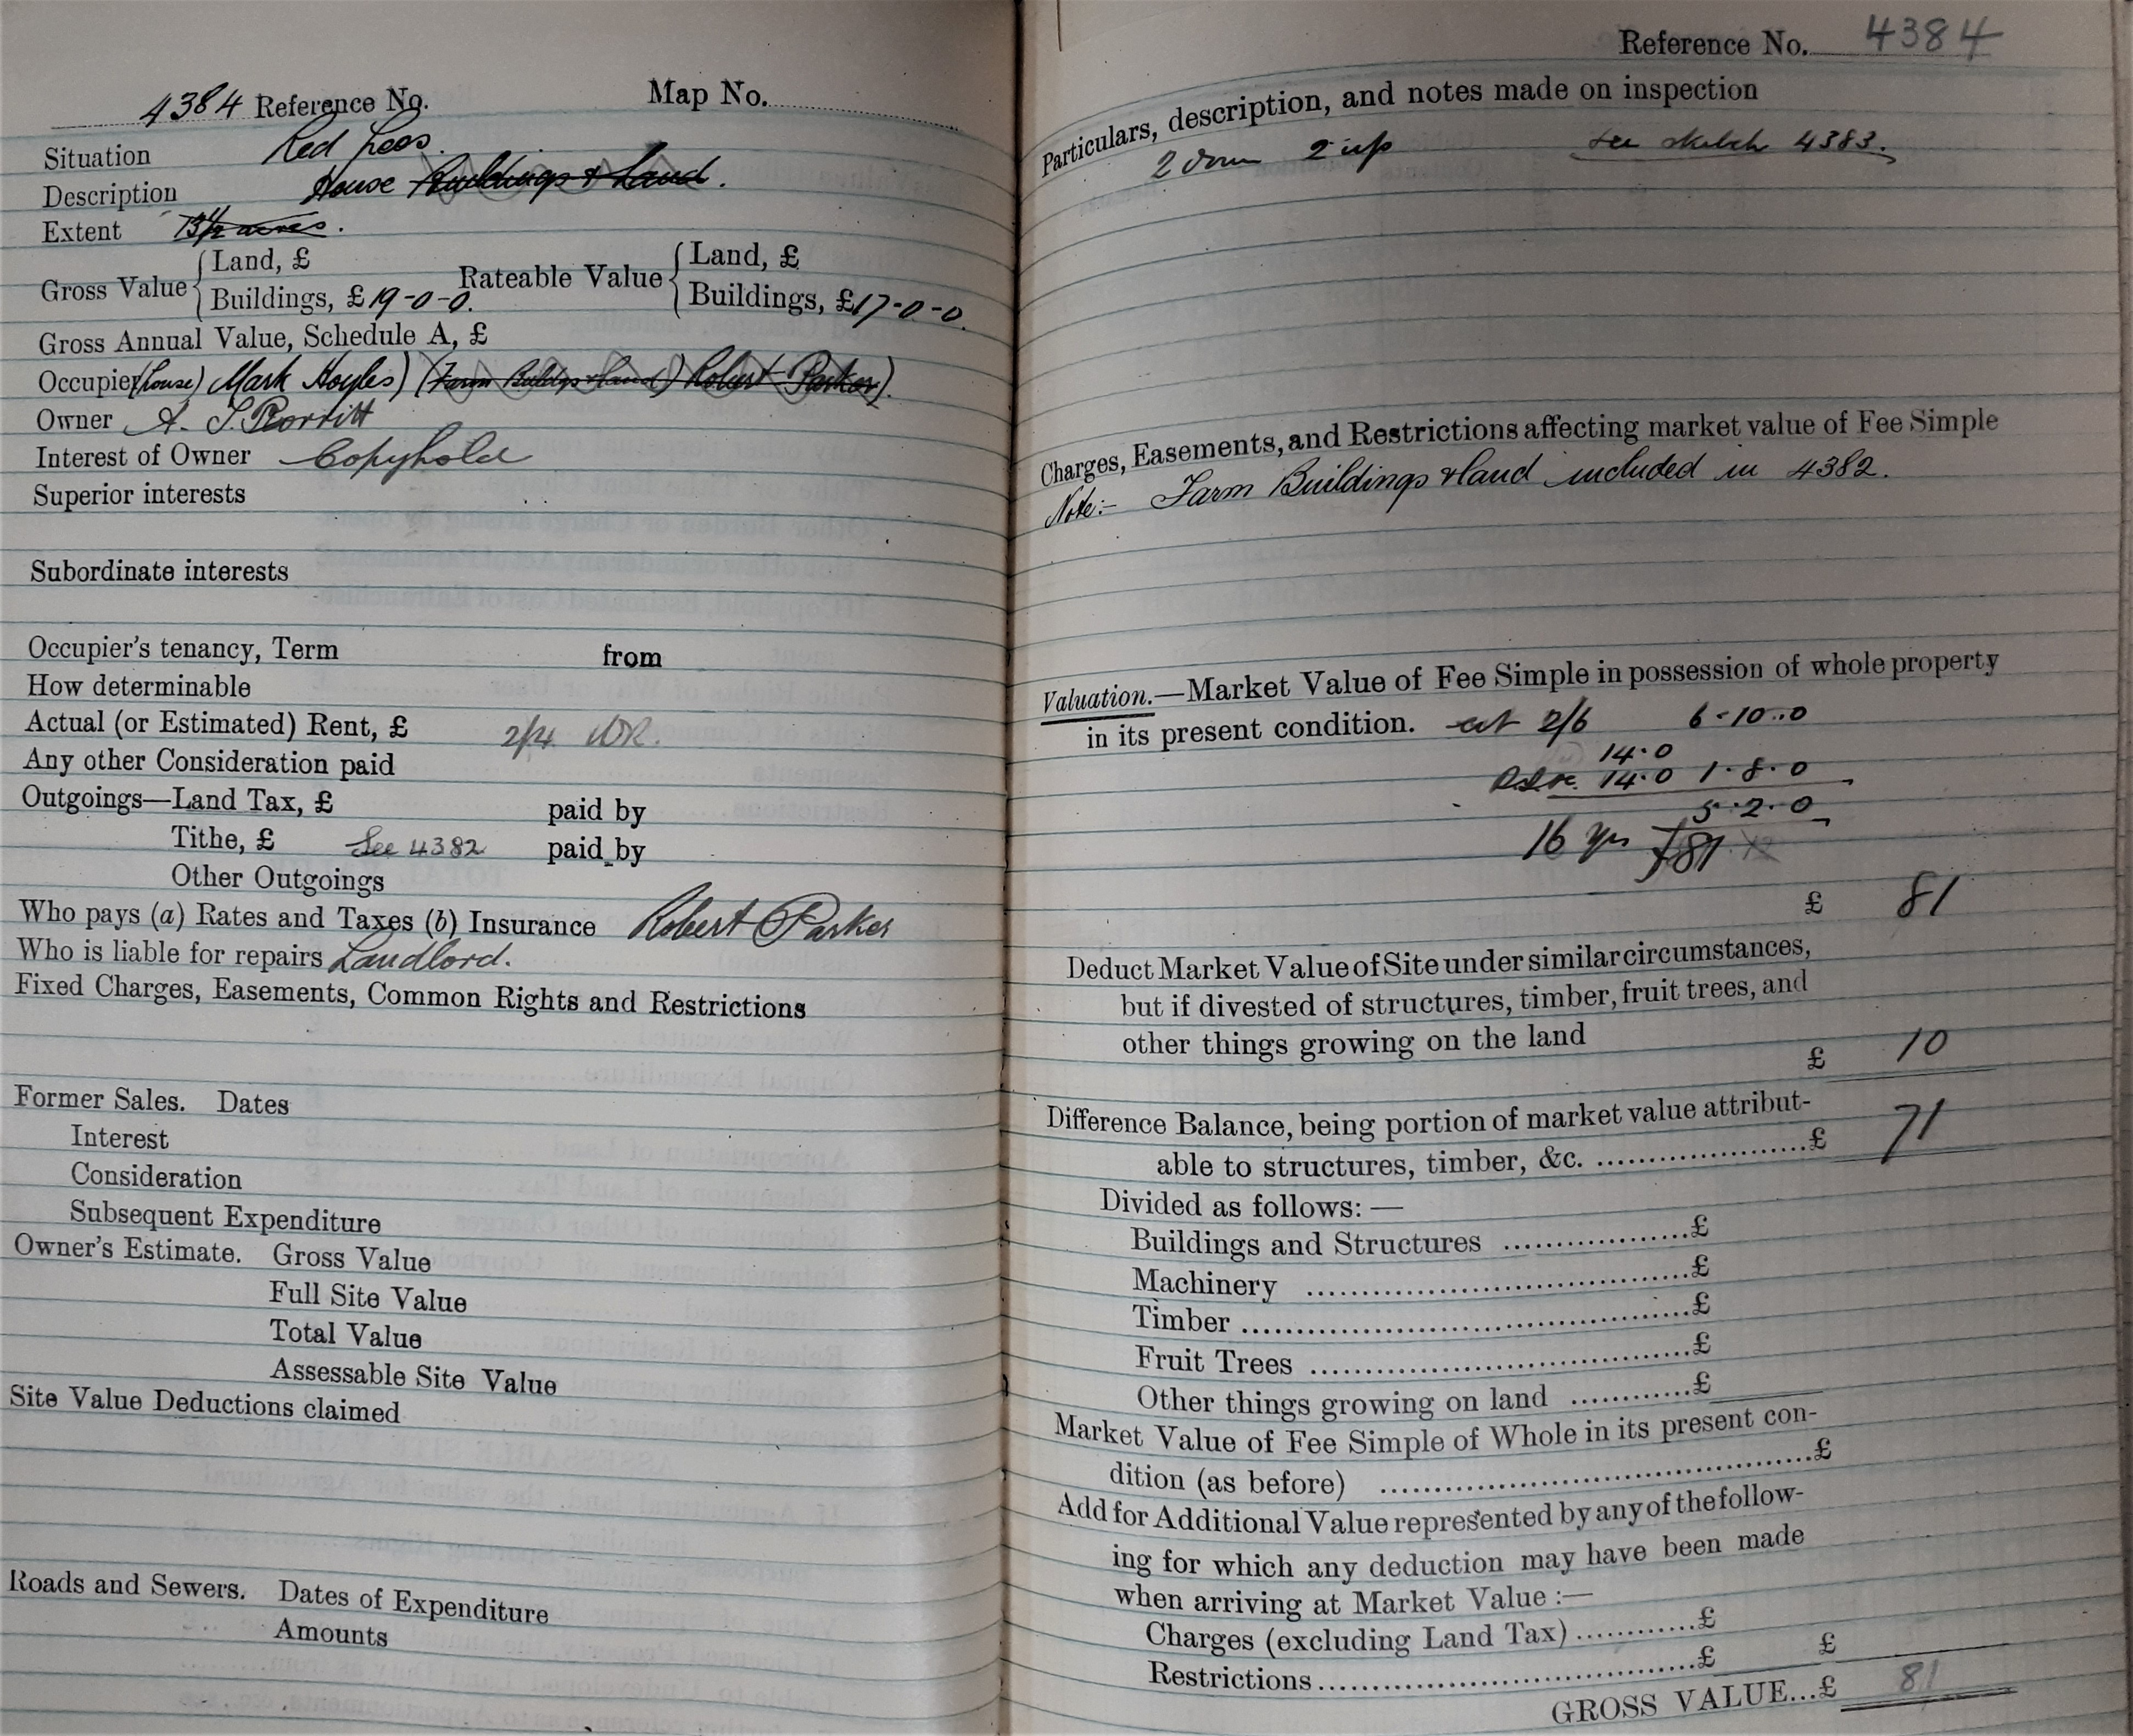 4384 Reference No. Map No.
Situation Red Lees.
Description House Buildings & Land.
Extent 13½ acres.
Gross Value { Land, £ Rateable Value { Land, £
Buildings, £19-0-0. Buildings, £17-0-0.
Gross Annual Value, Schedule A, £
Occupier (house) Mark Hoyles) (Farm Buldgs & land) Robert Parker).
Owner A. T. Porritt
Interest of Owner Copyhold
Superior interests
Subordinate interests
Occupier's tenancy, Term from
How determinable
Actual (or Estimated) Rent, £ 2/4 WR.
Any other Consideration paid
Outgoings—Land Tax, £ paid by
Tithe, £ See 4382 paid by
Other Outgoings
Who pays (a) Rates and Taxes (b) Insurance Robert Parker
Who is liable for repairs Landlord.
Fixed Charges, Easements, Common Rights and Restrictions
Former Sales. Dates
Interest
Consideration
Subsequent Expenditure
Owner's Estimate. Gross Value
Full Site Value
Total Value
Assessable Site Value
Site Value Deductions claimed
Roads and Sewers. Dates of Expenditure
Amounts
Reference No. 4384
Particulars, description, and notes made on inspection
2 down 2 up see sketch 4383.
Charges, Easements, and Restrictions affecting market value of Fee Simple
Note:- Farm Buildings & land included in 4382.
Valuation.—Market Value of Fee Simple in possession of whole property
in its present condition. at 2/6 6-10-0
14.0
14.0 1.8.0
5.2.0
16 yrs £81
£ 81
Deduct Market Value of Site under similar circumstances,
but if divested of structures, timber, fruit trees, and
other things growing on the land
£ 10
Difference Balance, being portion of market value attribut-
able to structures, timber, &c. ....................£ 71
Divided as follows: —
Buildings and Structures ..................£
Machinery ....................................£
Timber ..........................................£
Fruit Trees ....................................£
Other things growing on land ............£
Market Value of Fee Simple of Whole in its present con-
dition (as before) ..........................................£
Add for Additional Value represented by any of the follow-
ing for which any deduction may have been made
when arriving at Market Value :—
Charges (excluding Land Tax) ............£
Restrictions.....................................£ £
GROSS VALUE...£ 81